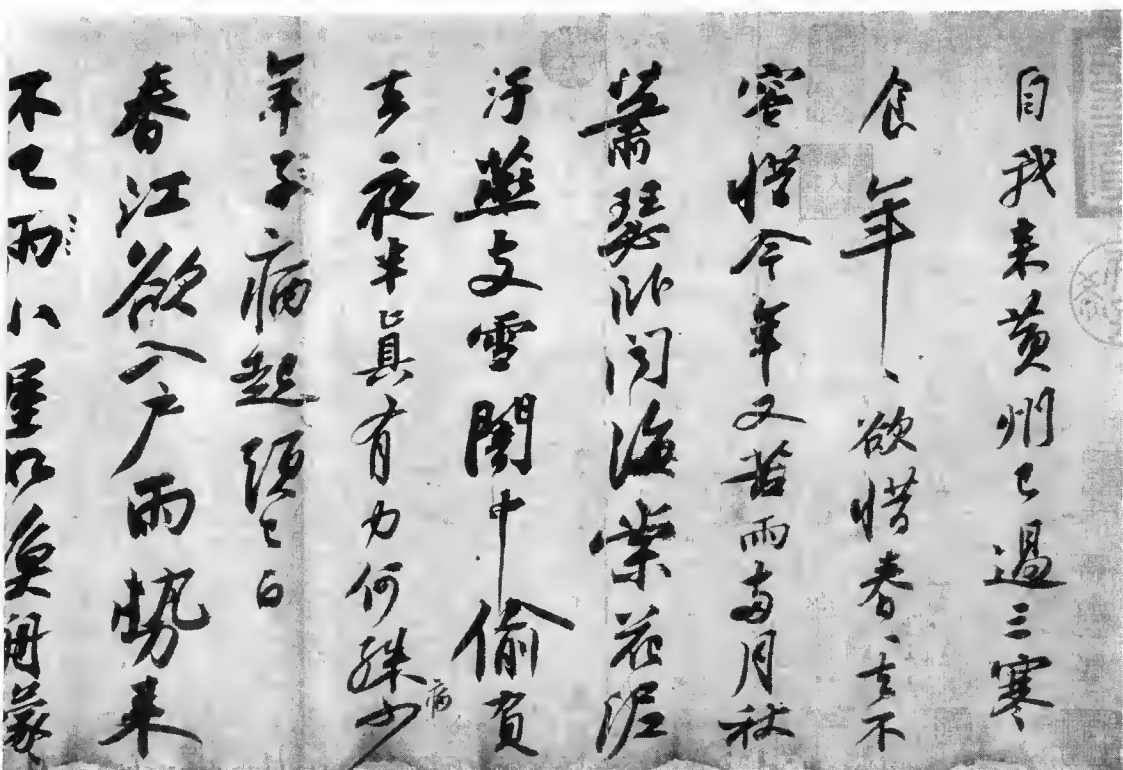 自我来黄州已過三寒
食年、欲惜春、去不
容惜今年又苦雨兩月秋
蕭瑟卧聞海棠花泥
汙燕支雪闇中偷負
去夜半真有力何殊少
病
年子病起頭已白
春江欲入户雨勢来
不已雨小屋如漁舟濛